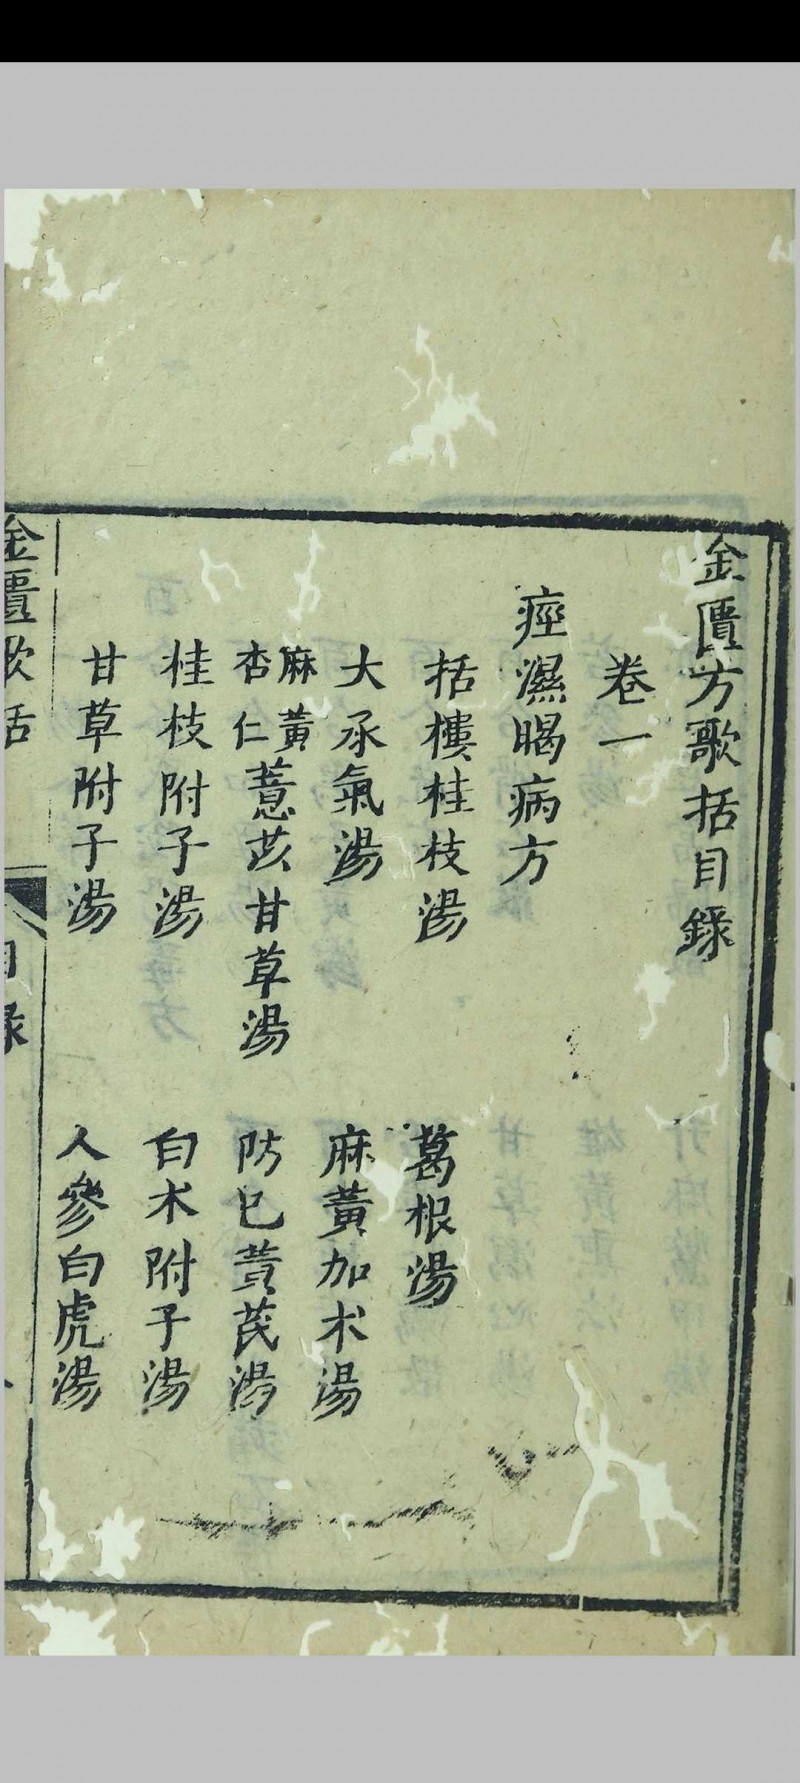 金匱方歌括目錄
卷一
痙濕暍病方
括樓桂枝湯
葛根湯
大承氣湯
麻黃加朮湯
麻黃杏仁薏苡甘草湯
防已黃芪湯
桂枝附子湯
白朮附子湯
甘草附子湯
人參白虎湯
金匱歌括
目錄